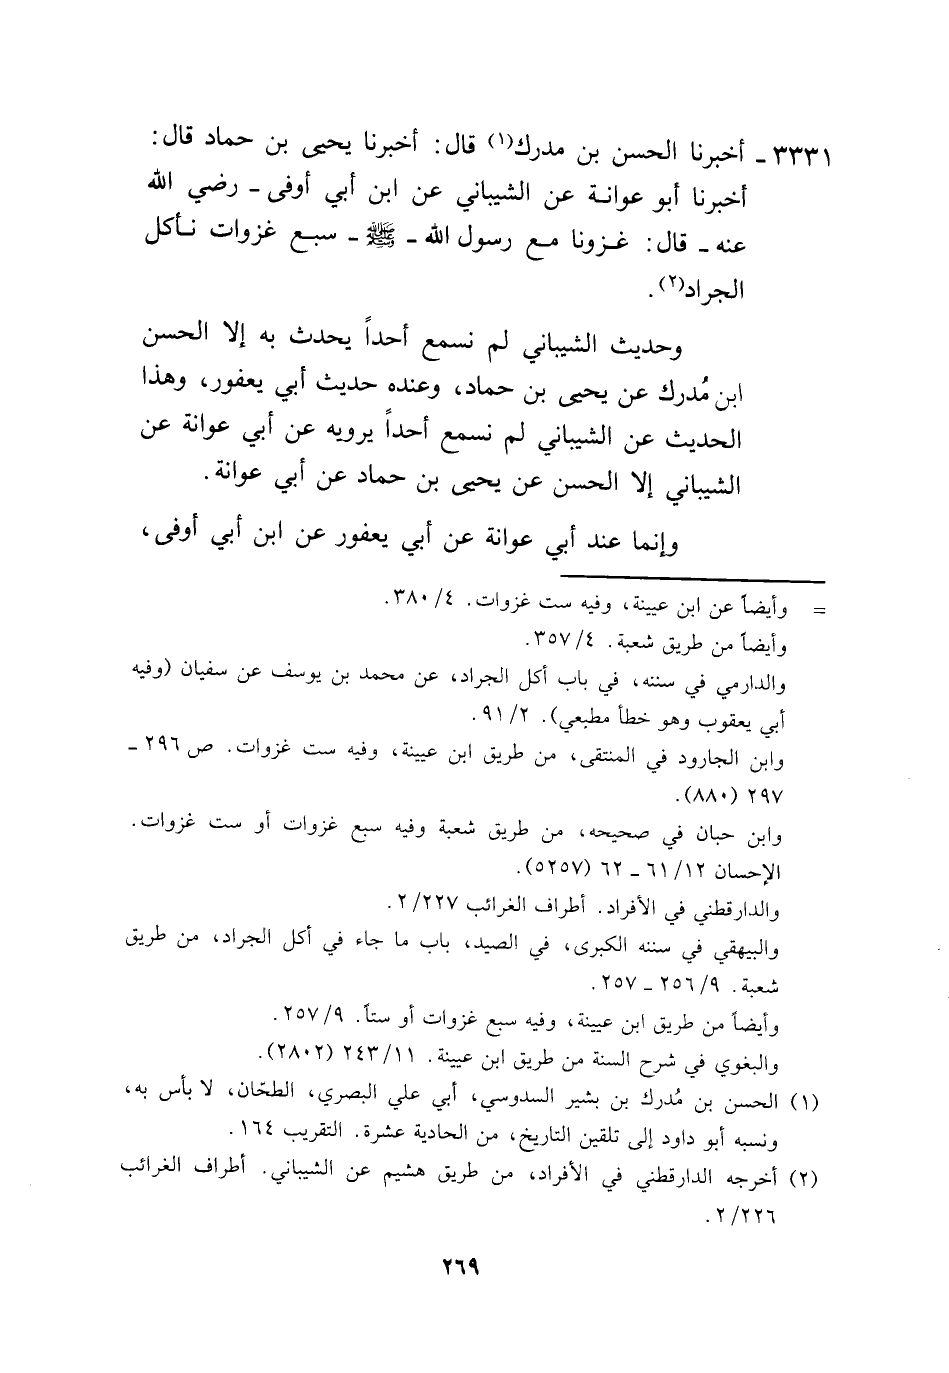 ٣٣٣١ ـ أخبرنا الحسن بن مدرك(١) قال: أخبرنا يحيى بن حماد قال:
أخبرنا أبو عوانة عن الشيباني عن ابن أبي أوفى ـ رضي الله
عنه ـ قال: غـزونا مـع رسول الله ـ ﷺ ـ سبـع غزوات نـأكل
الجراد(٢).
وحديث الشيباني لم نسمع أحداً يحدث به إلا الحسن
ابن مُدرك عن يحيى بن حماد، وعنده حديث أبي يعفور، وهذا
الحديث عن الشيباني لم نسمع أحداً يرويه عن أبي عوانة عن
الشيباني إلا الحسن عن يحيى بن حماد عن أبي عوانة.
وإنما عند أبي عوانة عن أبي يعفور عن ابن أبي أوفى،
= وأيضاً عن ابن عيينة، وفيه ست غزوات. ٤/ ٣٨٠.
وأيضاً من طريق شعبة. ٤/ ٣٥٧.
والدارمي في سننه، في باب أكل الجراد، عن محمد بن يوسف عن سفيان (وفيه
أبي يعقوب وهو خطأ مطبعي). ٢/ ٩١.
وابن الجارود في المنتقى، من طريق ابن عيينة، وفيه ست غزوات. ص ٢٩٦ ـ
٢٩٧ (٨٨٠).
وابن حبان في صحيحه، من طريق شعبة وفيه سبع غزوات أو ست غزوات.
الإحسان ١٢/ ٦١ ـ ٦٢ (٥٢٥٧).
والدارقطني في الأفراد. أطراف الغرائب ٢/٢٢٧.
والبيهقي في سننه الكبرى، في الصيد، باب ما جاء في أكل الجراد، من طريق
شعبة. ٩/ ٢٥٦ ـ ٢٥٧.
وأيضاً من طريق ابن عيينة، وفيه سبع غزوات أو ستاً. ٩/ ٢٥٧.
والبغوي في شرح السنة من طريق ابن عيينة. ١١/ ٢٤٣ (٢٨٠٢).
(١) الحسن بن مُدرك بن بشير السدوسي، أبي علي البصري، الطحّان، لا بأس به،
ونسبه أبو داود إلى تلقين التاريخ، من الحادية عشرة. التقريب ١٦٤.
(٢) أخرجه الدارقطني في الأفراد، من طريق هشيم عن الشيباني. أطراف الغرائب
٢/٢٢٦.
٢٦٩